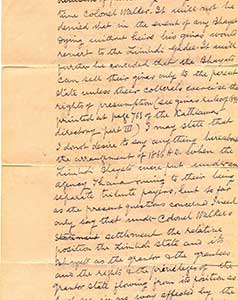 time Colonel Walker. It will not be
denied that in the event of any Bhayat
dying without heirs his giras would
revert to the Limbdi State. It will
further be conceded that the Bhayats
can sell their giras only to the parent
state unless their collaterals exercise the
rights of presumption (see giras rules of 18
printed at page 768 of the Kattiawar
directory part III) I may state that
I do not desire to say anything here about
the arrangement of 1865 A.C. when the
Limbdi Bhayats were put under
agency thana owing to their being
separate tribute payers, but so far
as the present question is concerned I need
only say that under Colonel Walker's
settlement the relative
position the Limbdi state and its
Bhayats as the grantor & the grantees
and the rights & the privileges of the
grantor state flowing from its
way affected by the